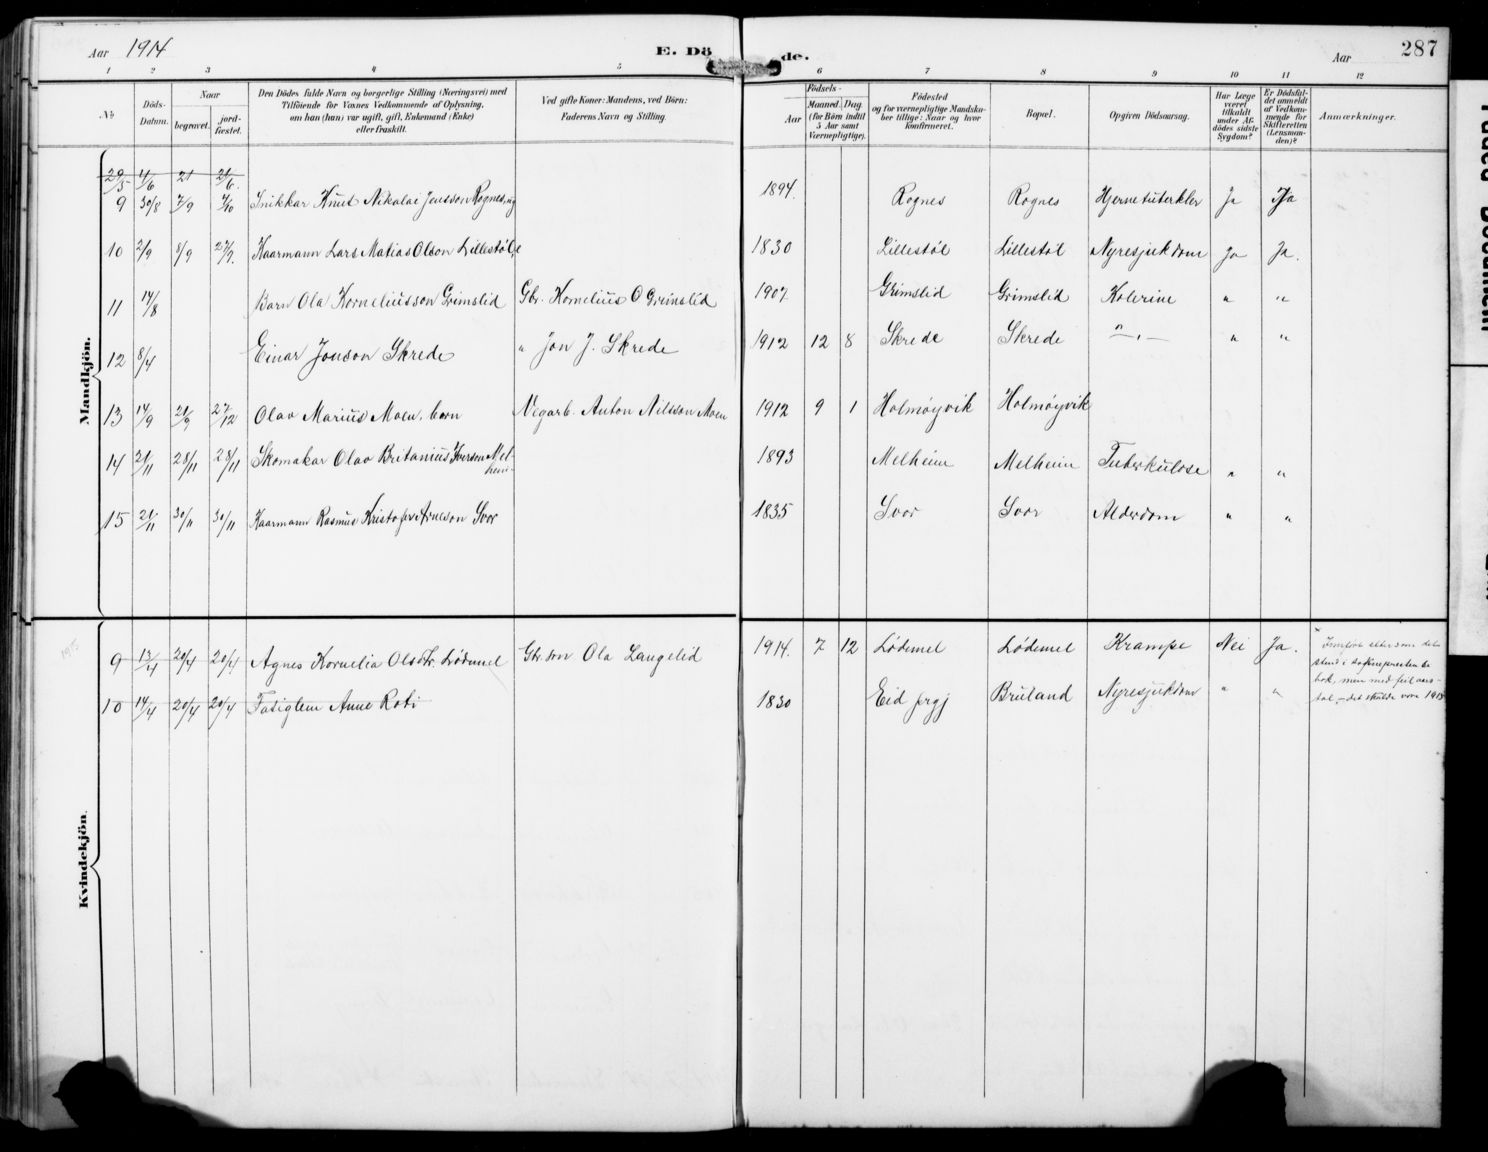 Aar 1914 E. Dö de. Aar 287
1 2 3 4 5 6 7 8 9 10 11 12
№
Döds-
Datum.
Naar
begravet.
jord-
fæstet.
Den Dödes fulde Navn og borgerlige Stilling (Næringsvei) med
Tilföiende for Voxnes Vedkommende af Oplysning,
om han (hun) var ugift, gift, Enkemand (Enke)
eller fraskilt.
Ved gifte Koner: Mandens, ved Börn:
Faderens Navn og Stilling.
Födsels-
Aar
Maaned. Dag.
(for Börn indtil
5 Aar samt
Værnepligtige).
Födested
og for værnepligtige Mandska-
ber tillige: Naar og hvor
konfirmeret.
Bopæl.
Opgiven Dödsaarsag.
Har Læge
været
tilkaldt
under Af-
dödes sidste
Sygdom?
Er Dödsfal-
det anmeldt
af Vedkom-
mende for
Skifteretten
(Lensman-
den)?
Anmærkninger.
Mandkjön.
29/5 4/6 21 21/6.
9 30/8 7/9 7/10 Snikkar Knut Nikolai Jensson Rognes, ug 1894. Rognes Rognes Hjernetuterkler Ja Ja
10 2/9 8/9 27/9. Kaarmann Lars Matias Olson Lillestöl 1830 Lillestöl Lillestöl Nyresjukdom Ja Ja.
11 14/8 Barn Ola Korneliusson Grimslid Gbr. Kornelius O Grimslid 1907 Grimslid Grimslid Kolerine " "
12 8/4 Einar Jonson Skrede " Jon J. Skrede 1912 12 8 Skrede Skrede — " — " "
13 14/9 21/9 27/12 Olav Marius Moen, barn Vegarb. Anton Nilsson Moen 1912 9 1 Holmöyvik Holmöyvik
14 21/11 28/11 28/11 Skomakar Olav Britanius Iverson Mel-
heim 1893 Melheim Melheim Tuberkulose " "
15 21/11 30/11 30/11 Kaarmann Rasmus Kristofer Arneson Svor 1835 Svor Svor Alderdom " "
Kvindekjön.
1915
9 13/4 20/4 20/4 Agnes Kornelia Olsdtr. Lödemel Gbr.son Ola Langelid 1914. 7 12 Lödemel Lödemel Krampe Nei Ja.
10 14/4 20/4 20/4 Fatiglem Anne Roti 1830 Eid prgj Bruland Nyresjukdom " "
Innført etter som det
stend i klokkarprotenbe
bok, men med feil aars-
tal, - det skulde vore 1915